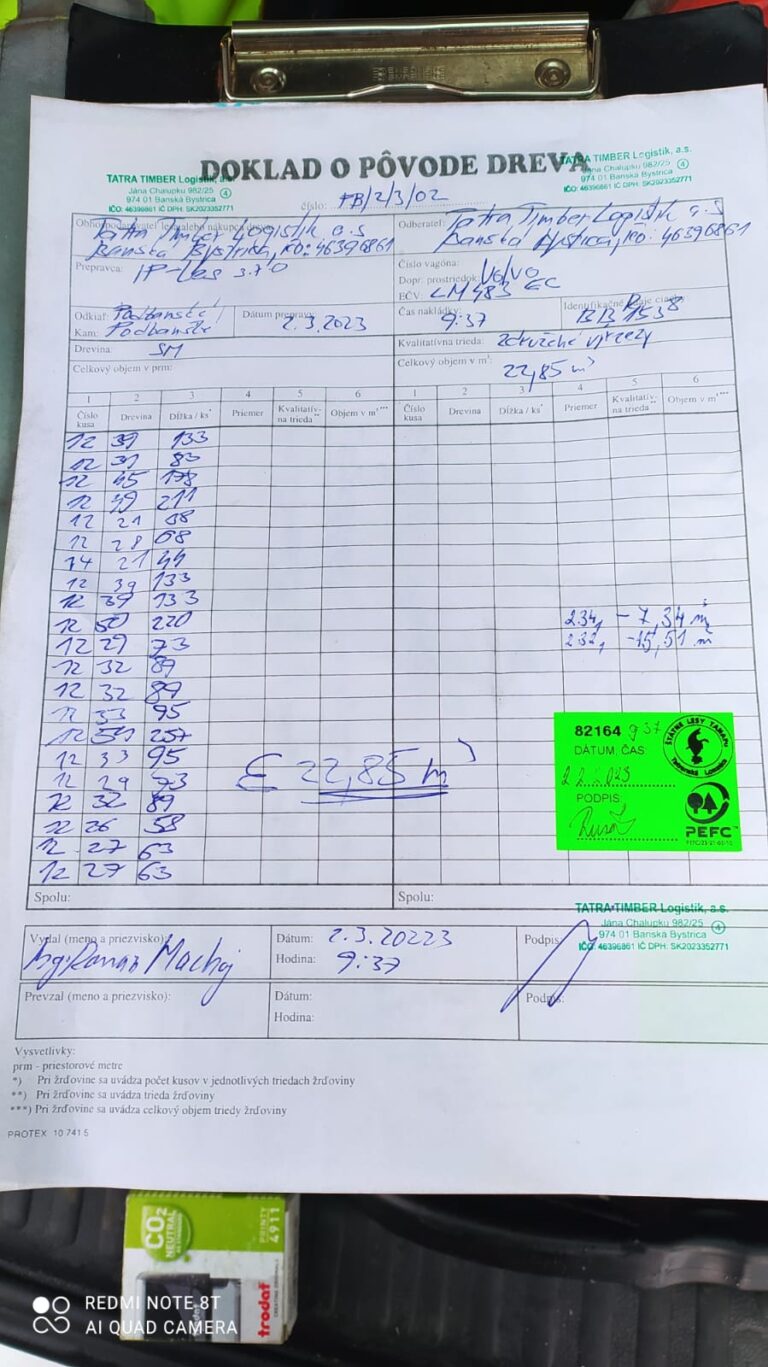 DOKLAD O PÔVODE DREVA
TATRA TIMBER Logistik, a.s.
Jána Chalupku 982/25
974 01 Banská Bystrica
IČO: 46396861 IČ DPH: SK2023352771
4
TATRA TIMBER Logistik, a.s.
Jána Chalupku 982/25
974 01 Banská Bystrica
IČO: 46396861 IČ DPH: SK2023352771
4
číslo: PB/2/3/02
Tatra Timber Logistik a.s
Banská Bystrica, IČO: 46396861
Odberateľ: Tatra Timber Logistik a.s
Banská Bystrica, IČO: 46396861
Prepravca: IP-Les s.r.o
Číslo vagóna:
Dopr. prostriedok: Volvo
EČV: LM483 EC
Odkiaľ: Podbanské
Kam: Podbanské
Dátum prepravy: 2.3.2023
Čas nakládky: 9:37
Drevina: SM
Kvalitatívna trieda: združené výrezy
Celkový objem v prm:
Celkový objem v m³: 22,85 m³
1 2 3 4 5 6 1 2 3 4 5 6
Číslo kusa Drevina Dĺžka / ks* Priemer Kvalitatívna trieda** Objem v m³*** Číslo kusa Drevina Dĺžka / ks* Priemer Kvalitatívna trieda** Objem v m³***
12 39 133
12 31 83
12 45 178
12 49 211
12 21
12 28 68
14 21 44
12 39 133
12 39 133
12 50 220
12 29 73
12 32 89
12 32 89
12 33 95
12 54 257
12 33 95
12 29 73
12 32 89
12 26 58
12 27 63
12 27 63
234, - 7,34 m³
232, - 15,51 m³
Σ 22,85 m³
82164 937
DÁTUM, ČAS:
2 2. 2023
PODPIS:
ŠTÁTNE LESY TANAPU
Tatranská Lomnica
PEFC
Spolu:
Spolu:
TATRA TIMBER Logistik, a.s.
Jána Chalupku 982/25
974 01 Banská Bystrica
IČO: 46396861 IČ DPH: SK2023352771
4
Vydal (meno a priezvisko):
Dátum: 2.3.20223
Hodina: 9:37
Podpis:
Prevzal (meno a priezvisko):
Dátum:
Hodina:
Podpis:
Vysvetlivky:
prm - priestorové metre
*) Pri žrďovine sa uvádza počet kusov v jednotlivých triedach žrďoviny
**) Pri žrďovine sa uvádza trieda žrďoviny
***) Pri žrďovine sa uvádza celkový objem triedy žrďoviny
PROTEX 10 741 5
CO2
NEUTRAL
PRINTY
4911
trodat
REDMI NOTE 8T
AI QUAD CAMERA